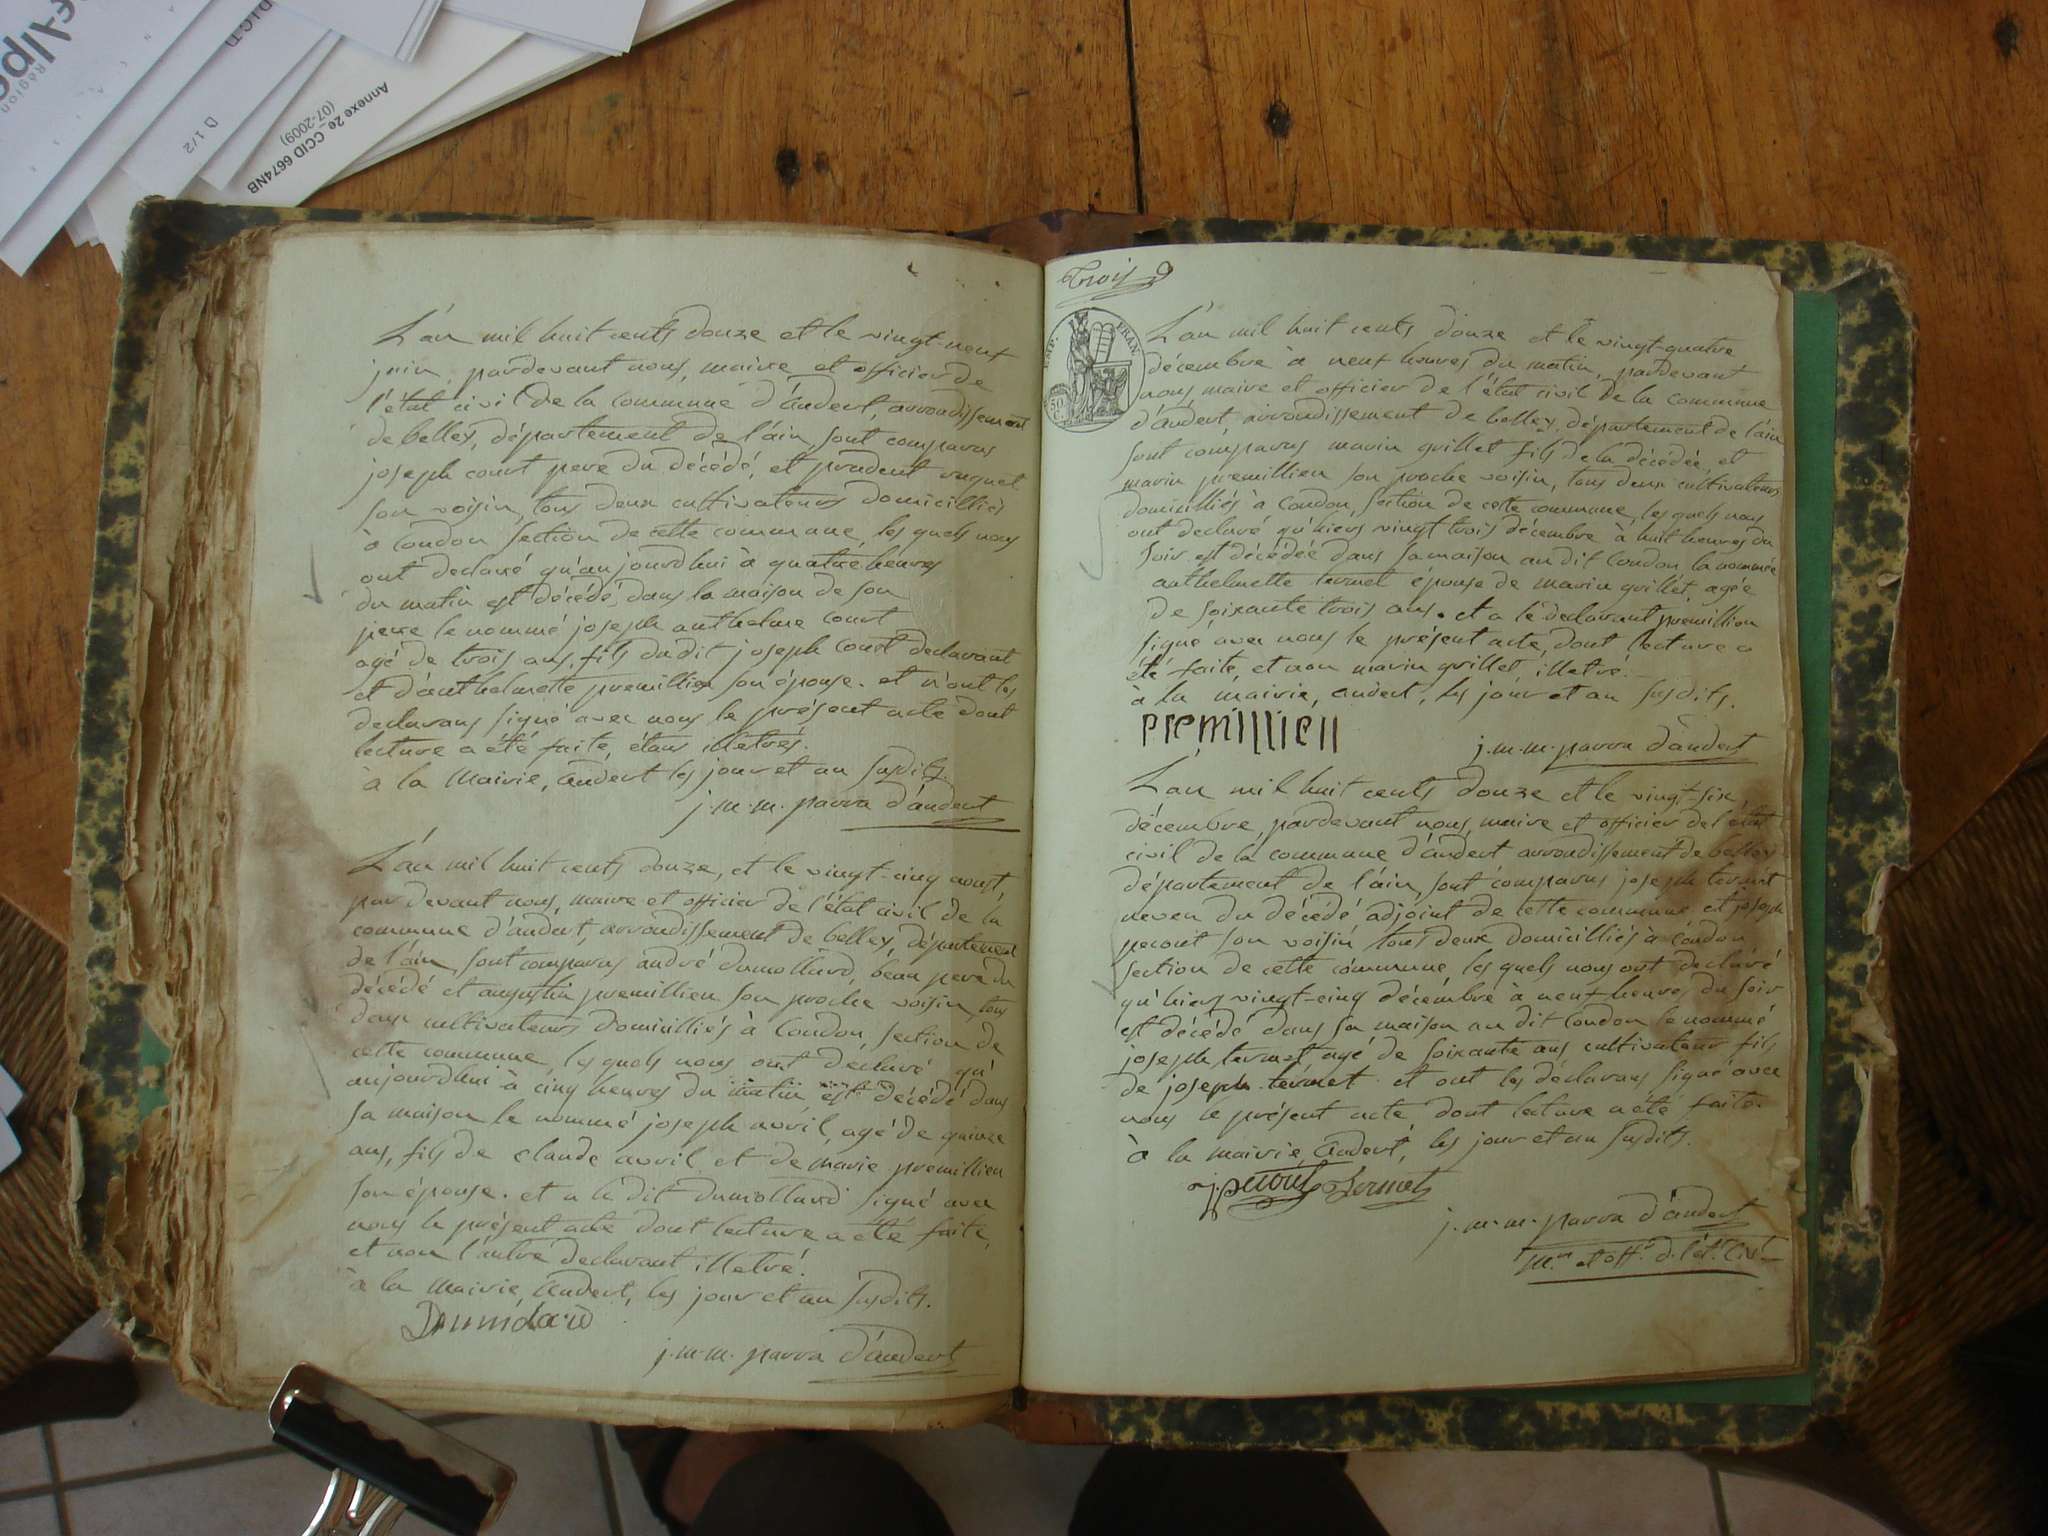 Alpe
Région
D 1/2
Annexe 2e_CCID 6674NB
(07-2009)
L'an mil huit cents douze et le vingt-neuf
juin, pardevant nous, maire et officier de
l'état civil de la commune d'andert, arrondissement
de belley, département de l'ain, sont comparus
joseph court pere du décédé, et prudent
son voisin, tous deux cultivateurs domicilliés
à Condon section de cette commune, les quels nous
ont declaré qu'aujourdhui à quatre heures
du matin est décédé, dans la maison de son
pere le nommé joseph anthelme court
agé de trois ans, fils du dit joseph court declarant
et d'anthelmette premillien son épouse. et n'ont les
declarans signé avec nous le présent acte dont
lecture a été faite, étans illetrés.
à la Mairie, andert les jour et an susdits.
j.m.m. parra d'andert
L'an mil huit cents douze, et le vingt-cinq aoust,
pardevant nous, maire et officier de l'état civil de la
commune d'andert, arrondissement de belley, département
de l'ain, sont comparus andré dumollard, beau pere du
décédé et augustin premillien son proche voisin, tous
deux cultivateurs domicilliés à Condon, section de
cette commune, les quels nous ont declaré qu'
aujourdhui à cinq heures du matin est décédé dans
sa maison le nommé joseph avril, agé de quinze
ans, fils de claude avril et de marie premillien
son épouse. et a le dit dumollard signé avec
nous le présent acte dont lecture a été faite,
et non l'autre declarant illetré.
à la Mairie, andert, les jour et an susdits.
j.m.m. parra d'andert
Trois
EMP. FRAN.
50
L'an mil huit cents douze et le vingt-quatre
décembre à neuf heures du matin, pardevant
nous, maire et officier de l'état civil de la commune
d'andert, arrondissement de belley, département de l'ain
sont comparus marin guillet fils de la décédée, et
marin premillien son proche voisin, tous deux cultivateurs
domicilliés à Condon, section de cette commune, les quels nous
ont declaré qu'hiers vingt trois décembre à huit heures du
soir est décédée dans sa maison au dit Condon la nommée
anthelmette termet épouse de marin guillet, agée
de soixante trois ans. et a le declarant premillien
signé avec nous le présent acte, dont lecture a
été faite, et non marin guillet illetré.
à la mairie, andert, les jour et an susdits.
premillien
j.m.m. parra d'andert
L'an mil huit cents douze et le vingt-six
décembre, pardevant nous, maire et officier de l'état
civil de la commune d'andert arrondissement de belley
département de l'ain, sont comparus joseph termet
neveu du décédé adjoint de cette commune et joseph
peront son voisin tous deux domicilliés à Condon
section de cette commune, les quels nous ont declaré
qu'hiers vingt-cinq décembre à neuf heures du soir
est décédé dans sa maison au dit Condon le nommé
joseph termet agé de soixante ans, cultivateur fils
de joseph termet. et ont les déclarans signé avec
nous le présent acte dont lecture a été faite.
à la mairie, andert, les jour et an susdits.
termet
j.m.m. parra d'andert
m.re et off.r d. l'ét. civil